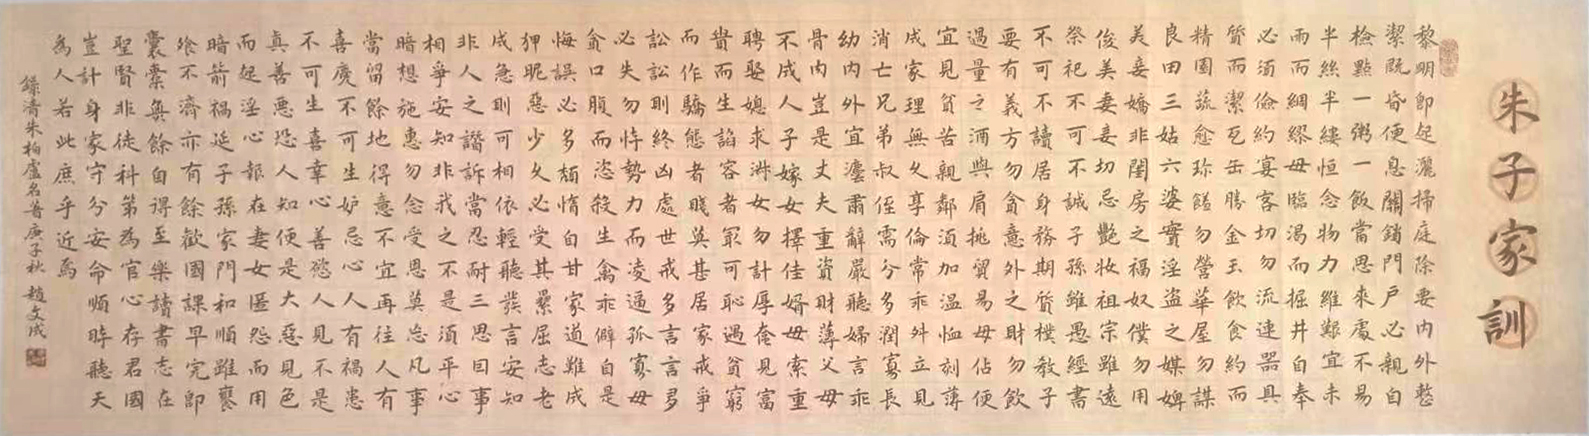 朱子家訓
黎明即起灑掃庭除要內外整
潔既昏便息關鎖門戶必親自
檢點一粥一飯當思來處不易
半絲半縷恒念物力維艱宜未
雨而綢繆毋臨渴而掘井自奉
必須儉約宴客切勿流連器具
質而潔瓦缶勝金玉飲食約而
精園蔬愈珍饈勿營華屋勿謀
良田三姑六婆實淫盜之媒婢
美妾嬌非閨房之福奴僕勿用
俊美妻妾切忌艷妝祖宗雖遠
祭祀不可不誠子孫雖愚經書
不可不讀居身務期質樸教子
要有義方勿貪意外之財勿飲
過量之酒與肩挑貿易毋佔便
宜見貧苦親鄰須加温恤刻薄
成家理無久享倫常乖舛立見
消亡兄弟叔侄需分多潤寡長
幼內外宜灋肅辭嚴聽婦言乖
骨肉豈是丈夫重資財薄父母
不成人子嫁女擇佳婿毋索重
聘娶媳求淑女勿計厚奩見富
貴而生諂容者最可恥遇貧窮
而作驕態者賤莫甚居家戒爭
訟訟則終凶處世戒多言言多
必失勿恃勢力而凌逼孤寡毋
貪口腹而恣殺生禽乖僻自是
悔誤必多頹惰自甘家道難成
狎昵惡少久必受其累屈志老
成急則可相依輕聽發言安知
非人之譖訴當忍耐三思因事
相爭安知非我之不是須平心
暗想施惠勿念受恩莫忘凡事
當留餘地得意不宜再往人有
喜慶不可生妒忌心人有禍患
不可生喜幸心善慾人見不是
真善惡恐人知便是大惡見色
而起淫心報在妻女匿怨而用
暗箭禍延子孫家門和順雖饔
飧不濟亦有餘歡國課早完即
囊橐無餘自得至樂讀書志在
聖賢非徒科第為官心存君國
豈計身家守分安命順時聽天
為人若此庶乎近焉
錄清朱柏廬名著庚子秋 趙文成